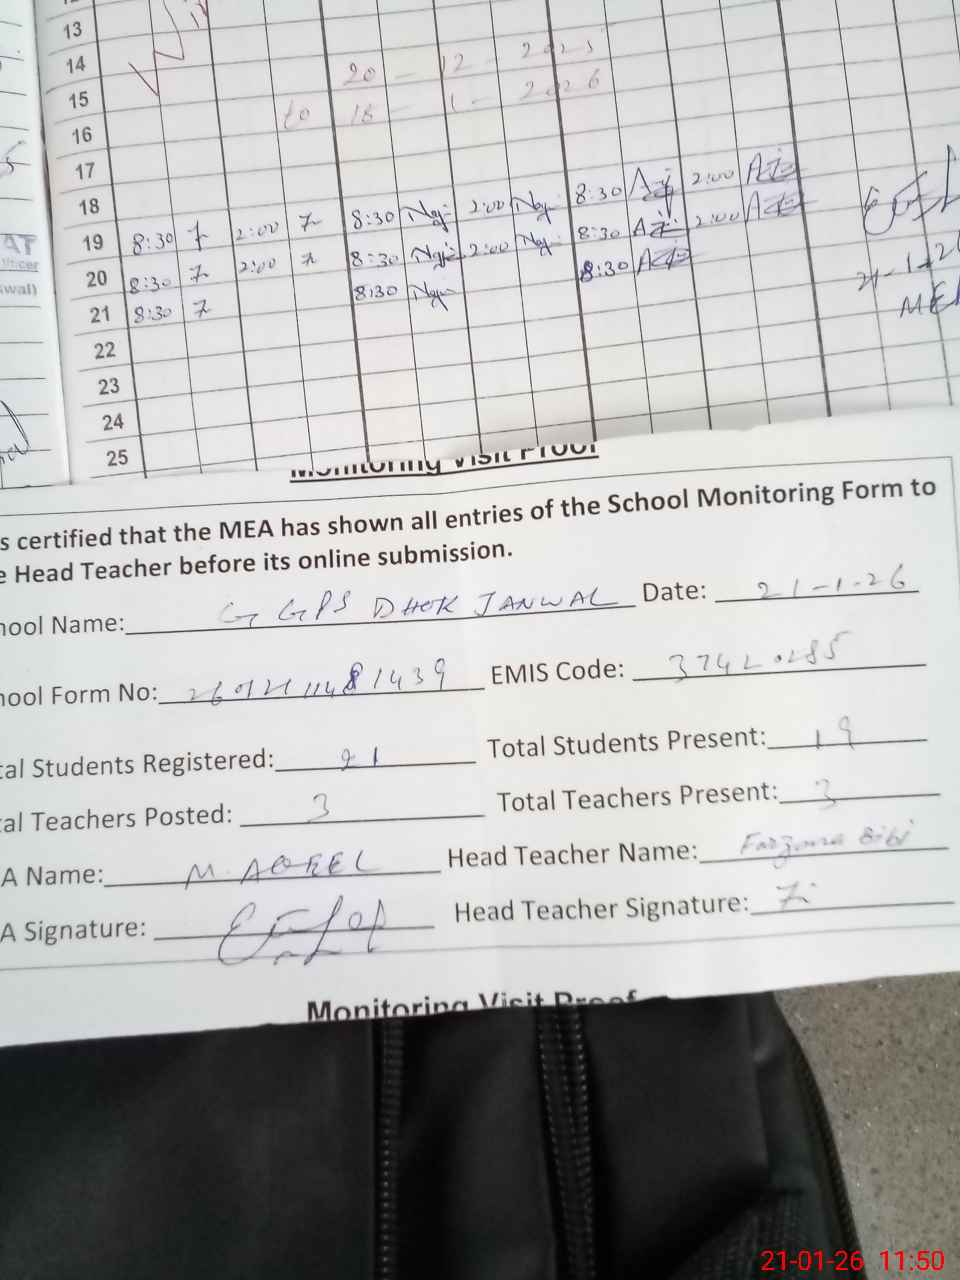 13
14
20 - 12 - 2025
15
to 18 - 1 - 2026
16
17
18
19 8:30 2:00 8:30 2:00 8:30 2:00
20 8:30 2:00 8:30 2:00 8:30 2:00
21 8:30 8:30 8:30
22
23
24
25
21-1-26
Monitoring Visit Proof
s certified that the MEA has shown all entries of the School Monitoring Form to
e Head Teacher before its online submission.
hool Name: GGPS DHOK JANWAL Date: 21-1-26
hool Form No: EMIS Code:
tal Students Registered: 21 Total Students Present: 19
tal Teachers Posted: 3 Total Teachers Present: 3
A Name: M. AQEEL Head Teacher Name: Farzana Bibi
A Signature: Head Teacher Signature:
Monitoring Visit Proof
21-01-26 11:50